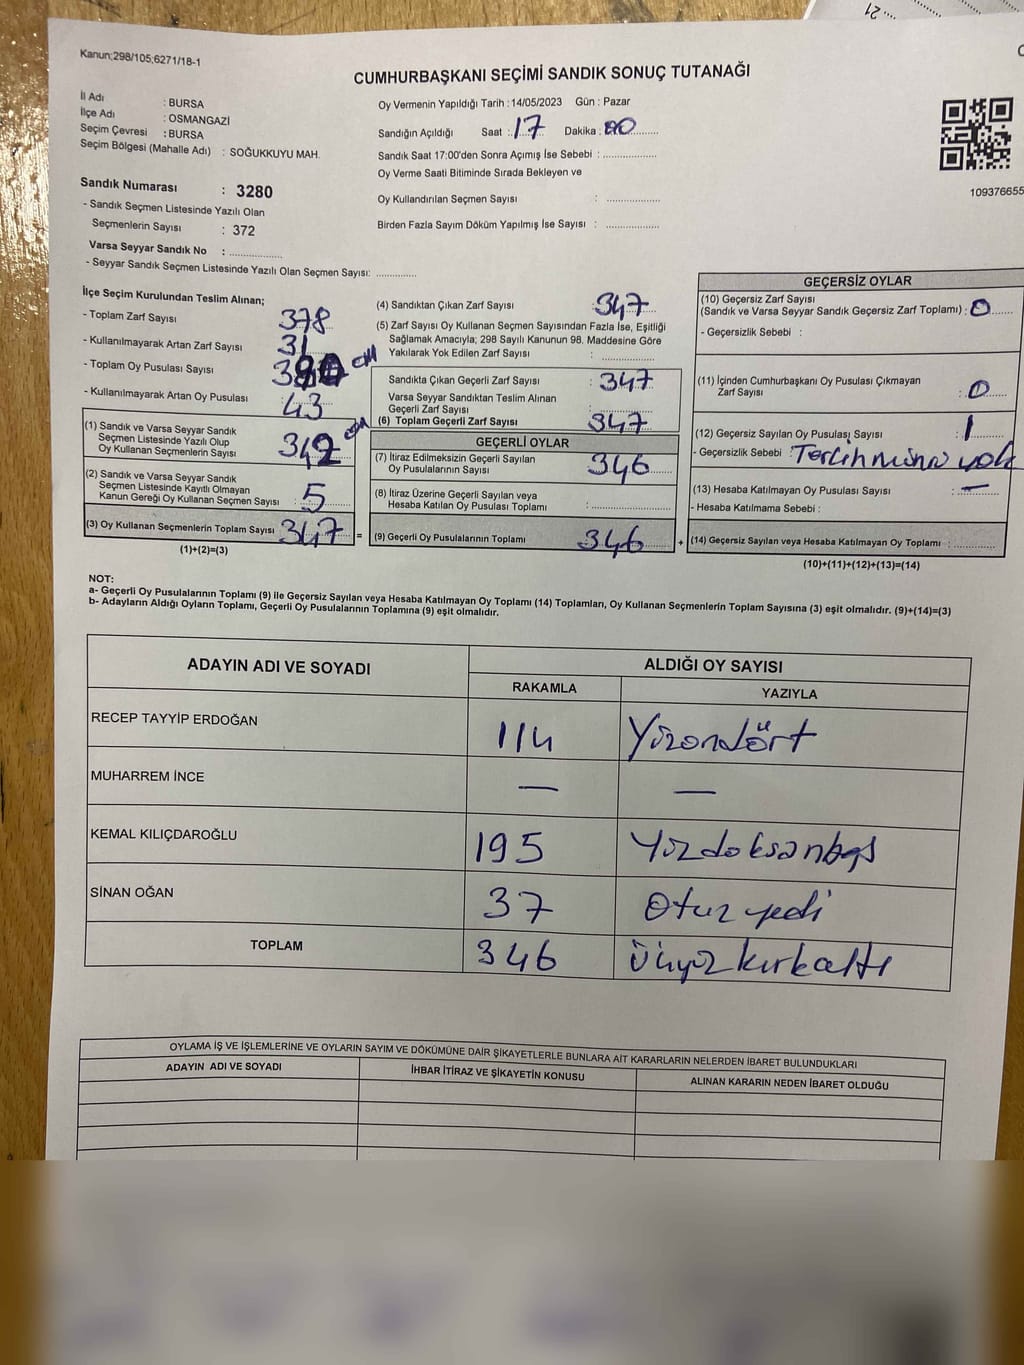 21
Kanun;298/105;6271/18-1
CUMHURBAŞKANI SEÇİMİ SANDIK SONUÇ TUTANAĞI
İl Adı : BURSA
İlçe Adı : OSMANGAZİ
Seçim Çevresi : BURSA
Seçim Bölgesi (Mahalle Adı) : SOĞUKKUYU MAH.
Oy Vermenin Yapıldığı Tarih : 14/05/2023 Gün : Pazar
Sandığın Açıldığı Saat : 17 Dakika : 00
Sandık Saat 17:00'den Sonra Açımış İse Sebebi : ..................
Oy Verme Saati Bitiminde Sırada Bekleyen ve
Oy Kullandırılan Seçmen Sayısı : ..................
Birden Fazla Sayım Döküm Yapılmış İse Sayısı : ..................
109376655
Sandık Numarası : 3280
- Sandık Seçmen Listesinde Yazılı Olan
Seçmenlerin Sayısı : 372
Varsa Seyyar Sandık No : ..................
- Seyyar Sandık Seçmen Listesinde Yazılı Olan Seçmen Sayısı: .............
İlçe Seçim Kurulundan Teslim Alınan;
- Toplam Zarf Sayısı 378
- Kullanılmayarak Artan Zarf Sayısı 31
- Toplam Oy Pusulası Sayısı
- Kullanılmayarak Artan Oy Pusulası 43
(1) Sandık ve Varsa Seyyar Sandık
Seçmen Listesinde Yazılı Olup
Oy Kullanan Seçmenlerin Sayısı 342
(2) Sandık ve Varsa Seyyar Sandık
Seçmen Listesinde Kayıtlı Olmayan
Kanun Gereği Oy Kullanan Seçmen Sayısı : 5
(3) Oy Kullanan Seçmenlerin Toplam Sayısı 347 =
(1)+(2)=(3)
(4) Sandıktan Çıkan Zarf Sayısı 347
(5) Zarf Sayısı Oy Kullanan Seçmen Sayısından Fazla İse, Eşitliği
Sağlamak Amacıyla; 298 Sayılı Kanunun 98. Maddesine Göre
Yakılarak Yok Edilen Zarf Sayısı : ..................
Sandıkta Çıkan Geçerli Zarf Sayısı : 347
Varsa Seyyar Sandıktan Teslim Alınan
Geçerli Zarf Sayısı : ..................
(6) Toplam Geçerli Zarf Sayısı 347
GEÇERLİ OYLAR
(7) İtiraz Edilmeksizin Geçerli Sayılan
Oy Pusulalarının Sayısı 346
(8) İtiraz Üzerine Geçerli Sayılan veya
Hesaba Katılan Oy Pusulası Toplamı : ..................
(9) Geçerli Oy Pusulalarının Toplamı 346 +
GEÇERSİZ OYLAR
(10) Geçersiz Zarf Sayısı
(Sandık ve Varsa Seyyar Sandık Geçersiz Zarf Toplamı) : 0
- Geçersizlik Sebebi :
(11) İçinden Cumhurbaşkanı Oy Pusulası Çıkmayan
Zarf Sayısı : 0
(12) Geçersiz Sayılan Oy Pusulası Sayısı : 1
- Geçersizlik Sebebi : yok
(13) Hesaba Katılmayan Oy Pusulası Sayısı : —
- Hesaba Katılmama Sebebi :
(14) Geçersiz Sayılan veya Hesaba Katılmayan Oy Toplamı : .............
(10)+(11)+(12)+(13)=(14)
NOT:
a- Geçerli Oy Pusulalarının Toplamı (9) ile Geçersiz Sayılan veya Hesaba Katılmayan Oy Toplamı (14) Toplamları, Oy Kullanan Seçmenlerin Toplam Sayısına (3) eşit olmalıdır. (9)+(14)=(3)
b- Adayların Aldığı Oyların Toplamı, Geçerli Oy Pusulalarının Toplamına (9) eşit olmalıdır.
ADAYIN ADI VE SOYADI ALDIĞI OY SAYISI
RAKAMLA YAZIYLA
RECEP TAYYİP ERDOĞAN 114 Yüzondört
MUHARREM İNCE — —
KEMAL KILIÇDAROĞLU 195 Yüzdoksanbeş
SİNAN OĞAN 37 Otuz yedi
TOPLAM 346 Üçyüzkırkaltı
OYLAMA İŞ VE İŞLEMLERİNE VE OYLARIN SAYIM VE DÖKÜMÜNE DAİR ŞİKAYETLERLE BUNLARA AİT KARARLARIN NELERDEN İBARET BULUNDUKLARI
ADAYIN ADI VE SOYADI İHBAR İTİRAZ VE ŞİKAYETİN KONUSU ALINAN KARARIN NEDEN İBARET OLDUĞU